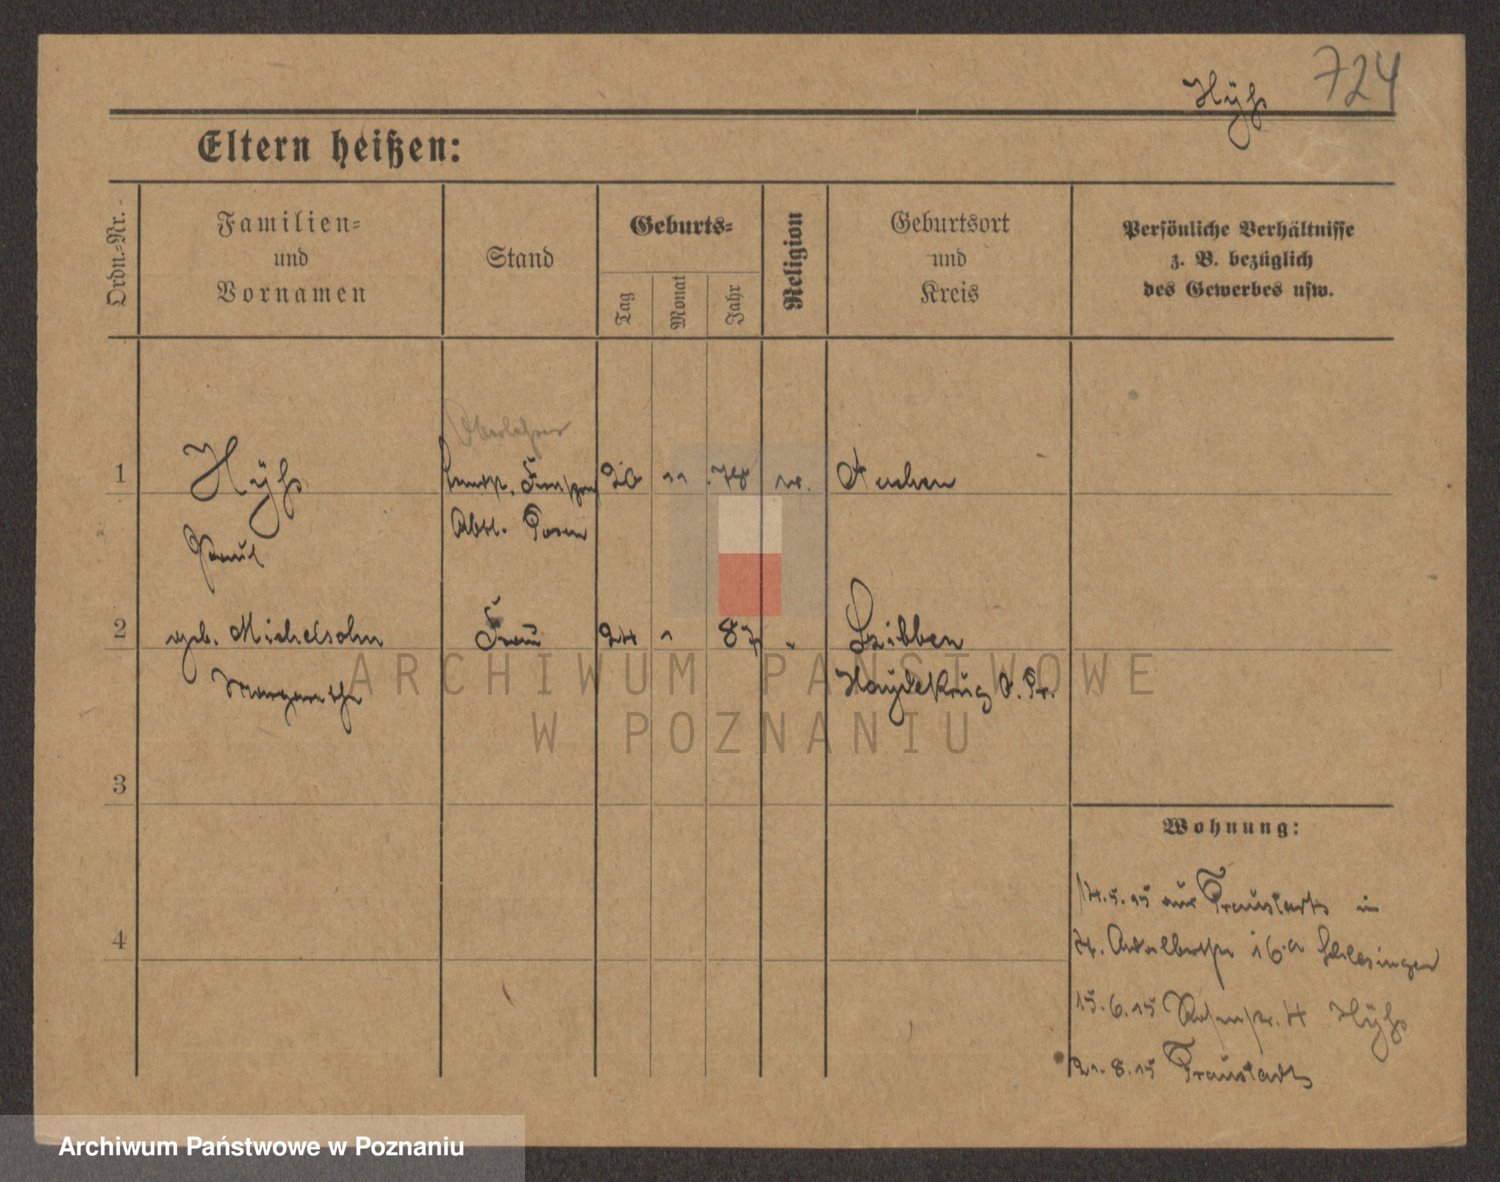 Hÿß 724
Eltern heißen:
Ordn.-Nr.
Familien-
und
Vornamen
Stand
Geburts-
Tag
Monat
Jahr
Religion
Geburtsort
und
Kreis
Persönliche Verhältnisse
z. B. bezüglich
des Gewerbes usw.
Oberlehrer
1 Hÿß 26 11 78 Aachen
Abtl. Posen
Paul
2 geb. Michelsohn Frau 24 1 87 " Szibben
Margarethe Heydekrug O. Pr.
3
Wohnung:
14.5.15 aus Fraustadt in
4
74. Adalbertstr 16a Schlesinger
15.6.15 4 Hÿß
21.8.15 Fraustadt
ARCHIWUM PAŃSTWOWE
W POZNANIU
Archiwum Państwowe w Poznaniu